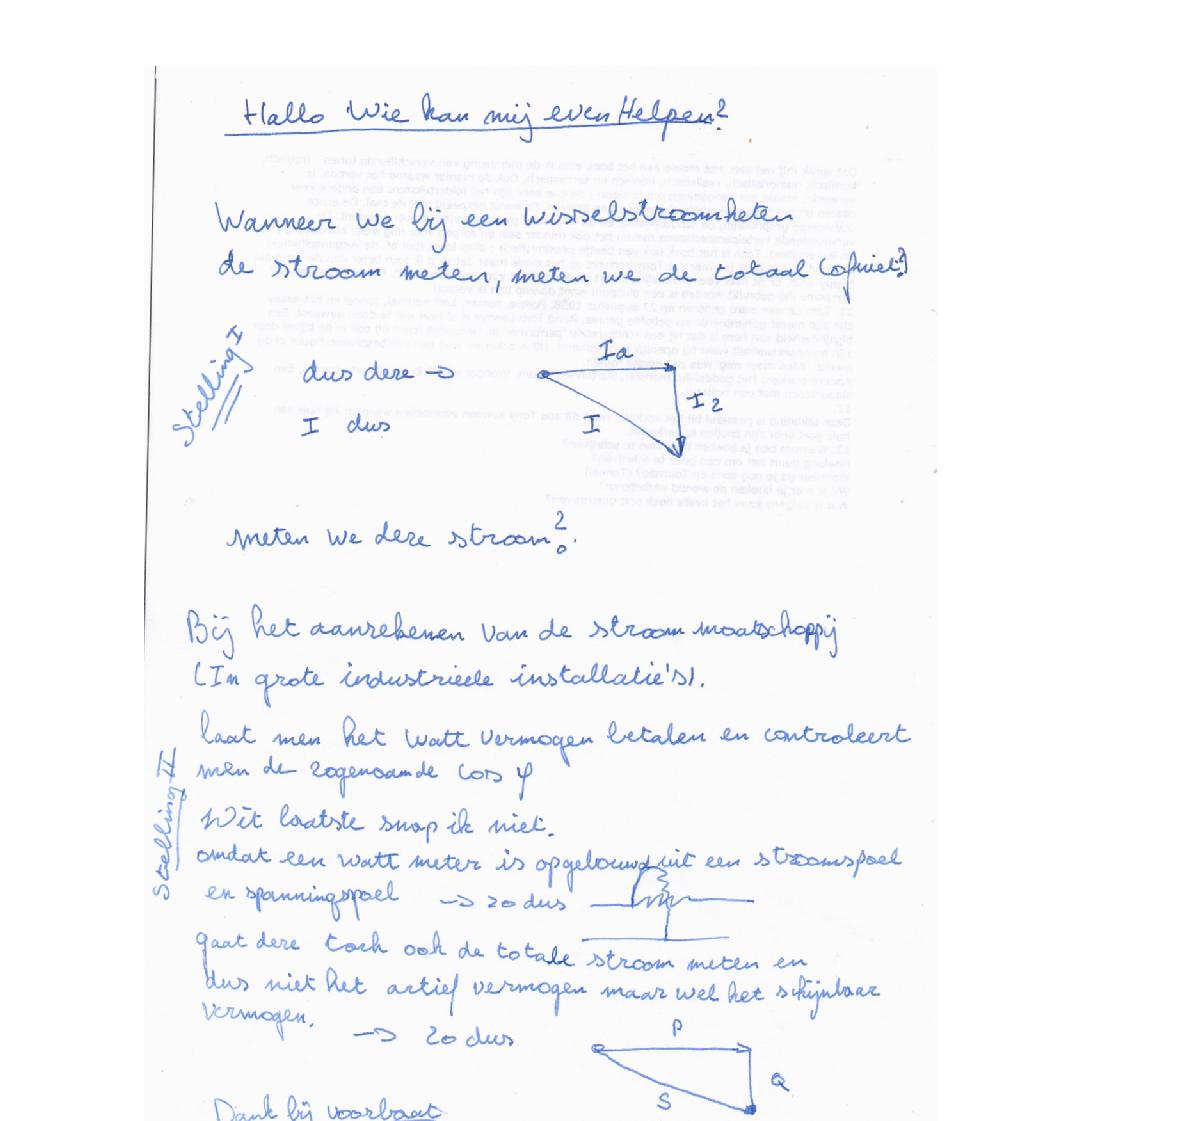 Hallo Wie kan mij even Helpen?
Wanneer we bij een wisselstroomketen
de stroom meten, meten we de totaal (ofniet?)
Stelling I
dus deze →
Ia
I dus
I
I2
meten we deze stroom?
Bij het aanrekenen van de stroommaatschappij
(In grote industrieele installatie's).
laat men het Watt vermogen betalen en controleert
men de zogenaamde Cos φ
Stelling II
Dit laatste snap ik niet.
omdat een watt meter is opgebouwd uit een stroomspoel
en spanningspoel → zo dus
gaat deze toch ook de totale stroom meten en
dus niet het actief vermogen maar wel het schijnbaar
vermogen.
→ zo dus
P
Q
S
Dank bij voorbaat